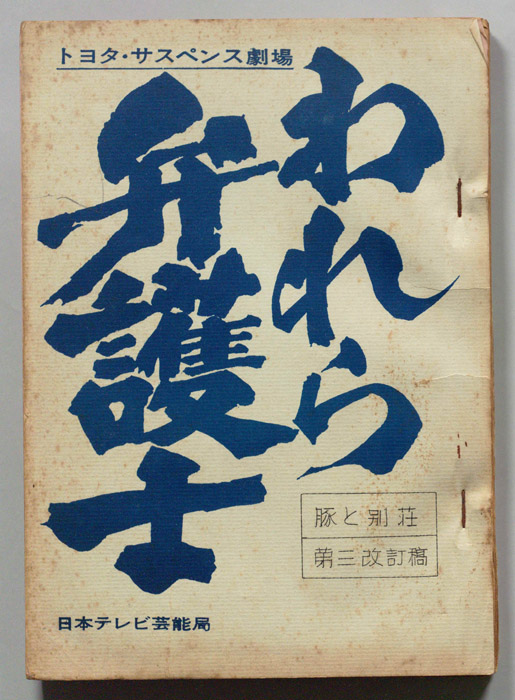 トヨタ・サスペンス劇場
われら
弁護士
豚と別荘
第三改訂稿
日本テレビ芸能局